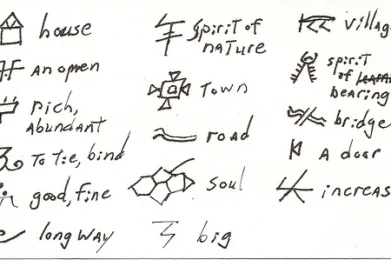 house
An omen
Rich,
Abundant
To tie, bind
good, fine
long way
Spirit of
nature
Town
road
soul
big
villag
spirit
of
bearing
bridge
A door
increas